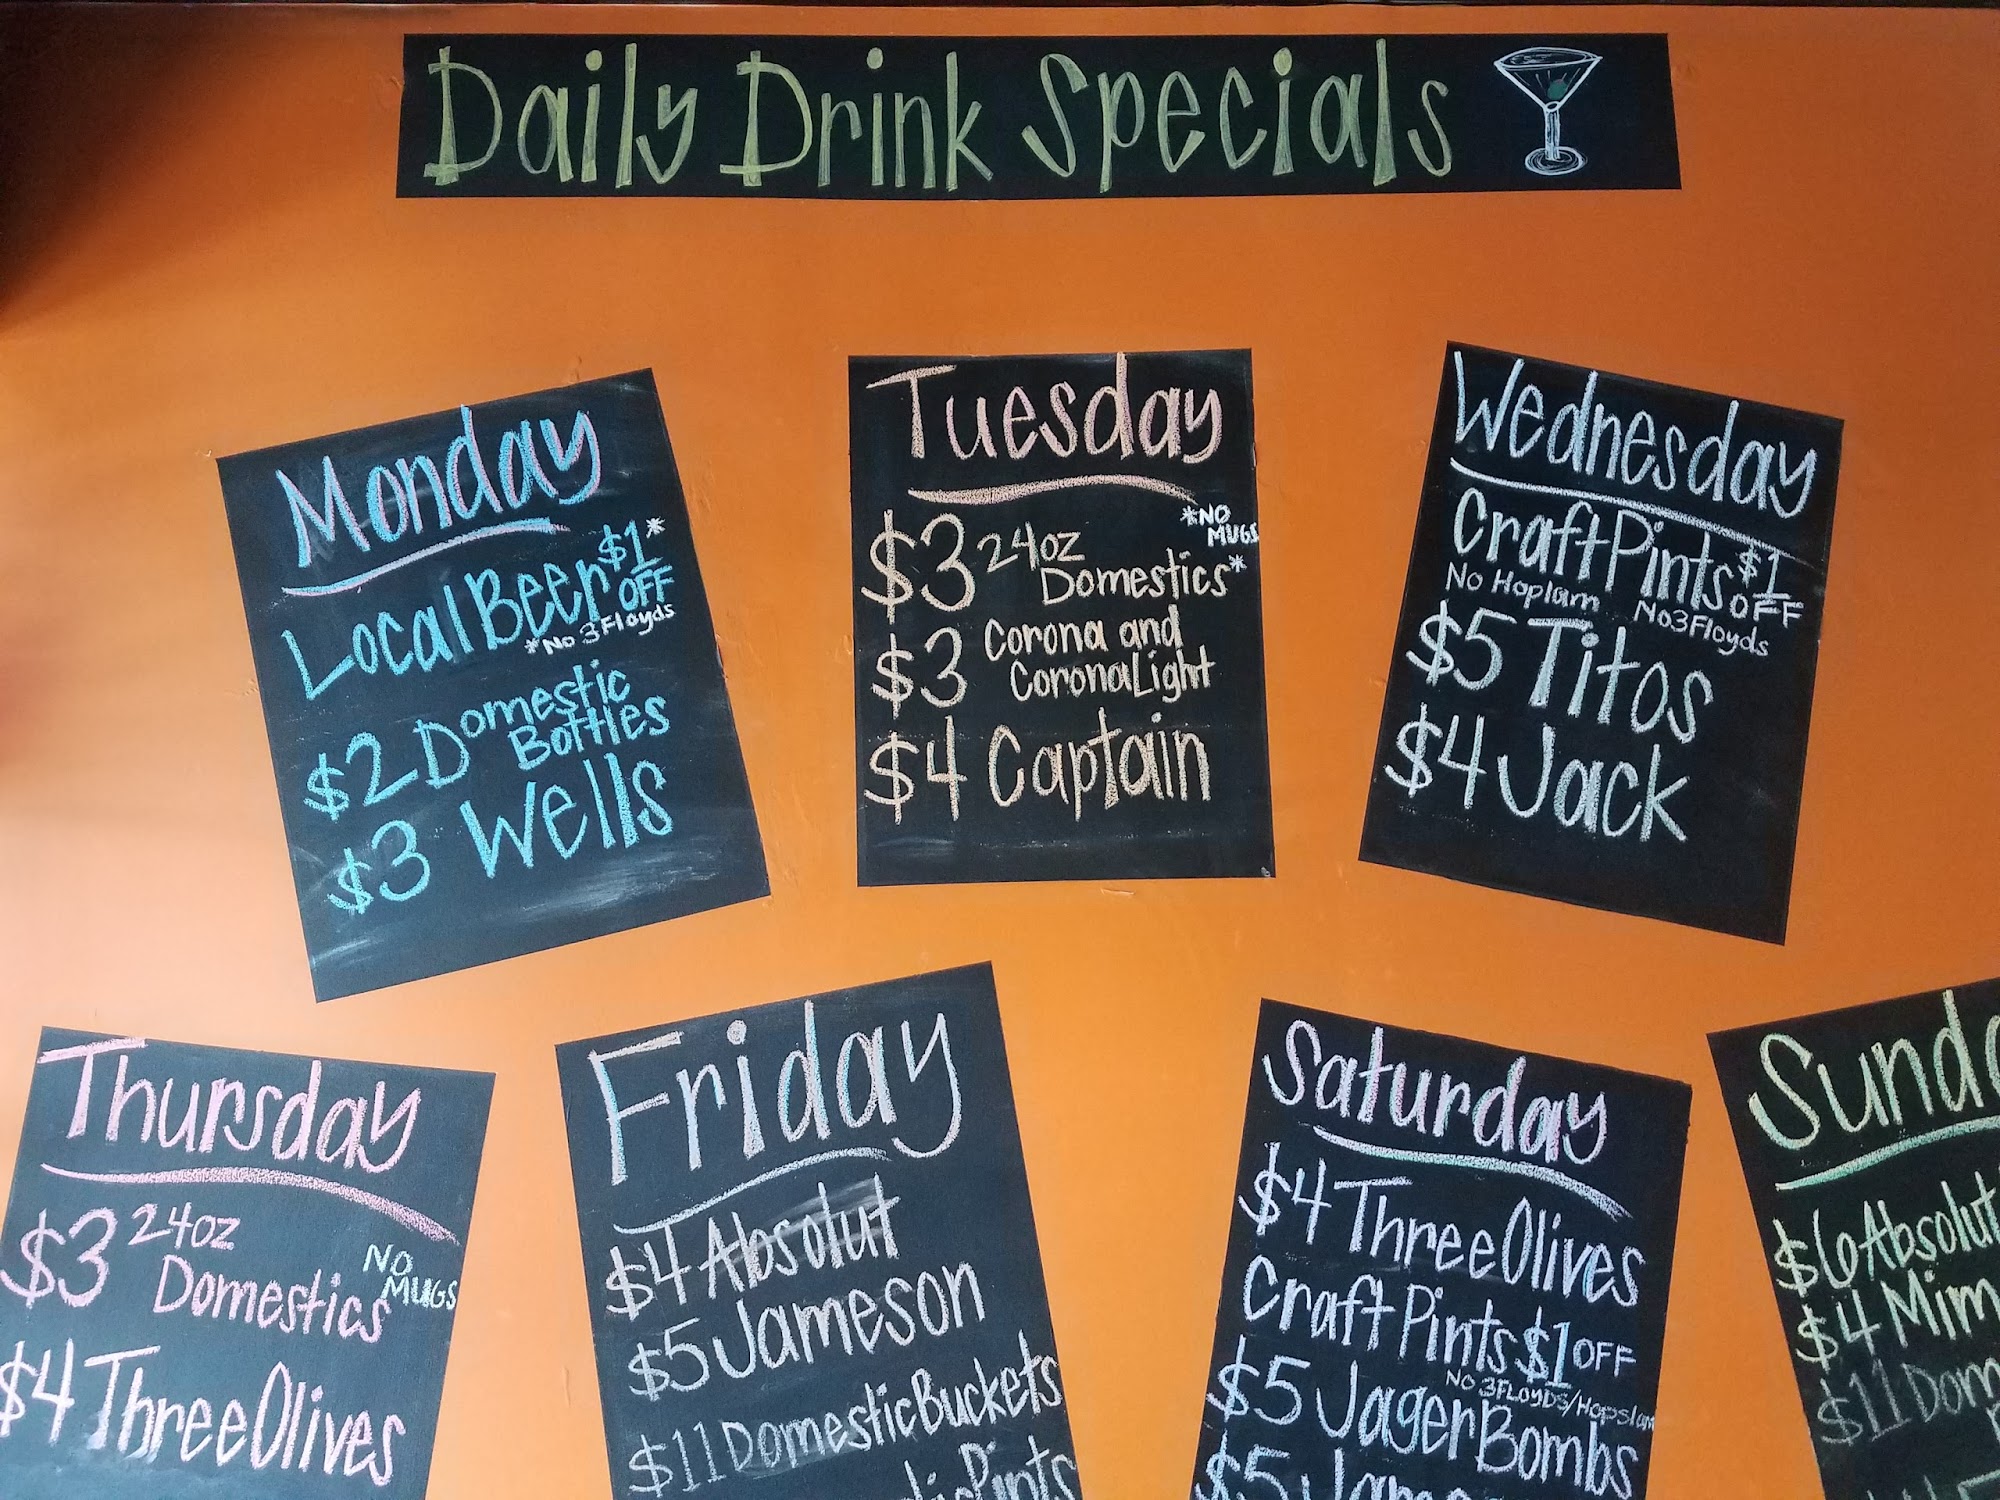 Daily Drink Specials
Monday
Local Beer $1 OFF*
*No 3Floyds
$2 Domestic Bottles
$3 Wells
Tuesday
*NO MUGS
$3 24oz Domestics*
$3 Corona and Corona Light
$4 Captain
Wednesday
Craft Pints $1 OFF
No Hoplam No3Floyds
$5 Titos
$4 Jack
Thursday
$3 24oz Domestics
NO MUGS
$4 Three Olives
Friday
$4 Absolut
$5 Jameson
$11 Domestic Buckets
Pints
Saturday
$4 Three Olives
Craft Pints $1 OFF
NO 3FLOYDS/Hopslam
$5 JagerBombs
$5 Jame
Sunda
$6 Absolut
$4 Mim
$11 Dom